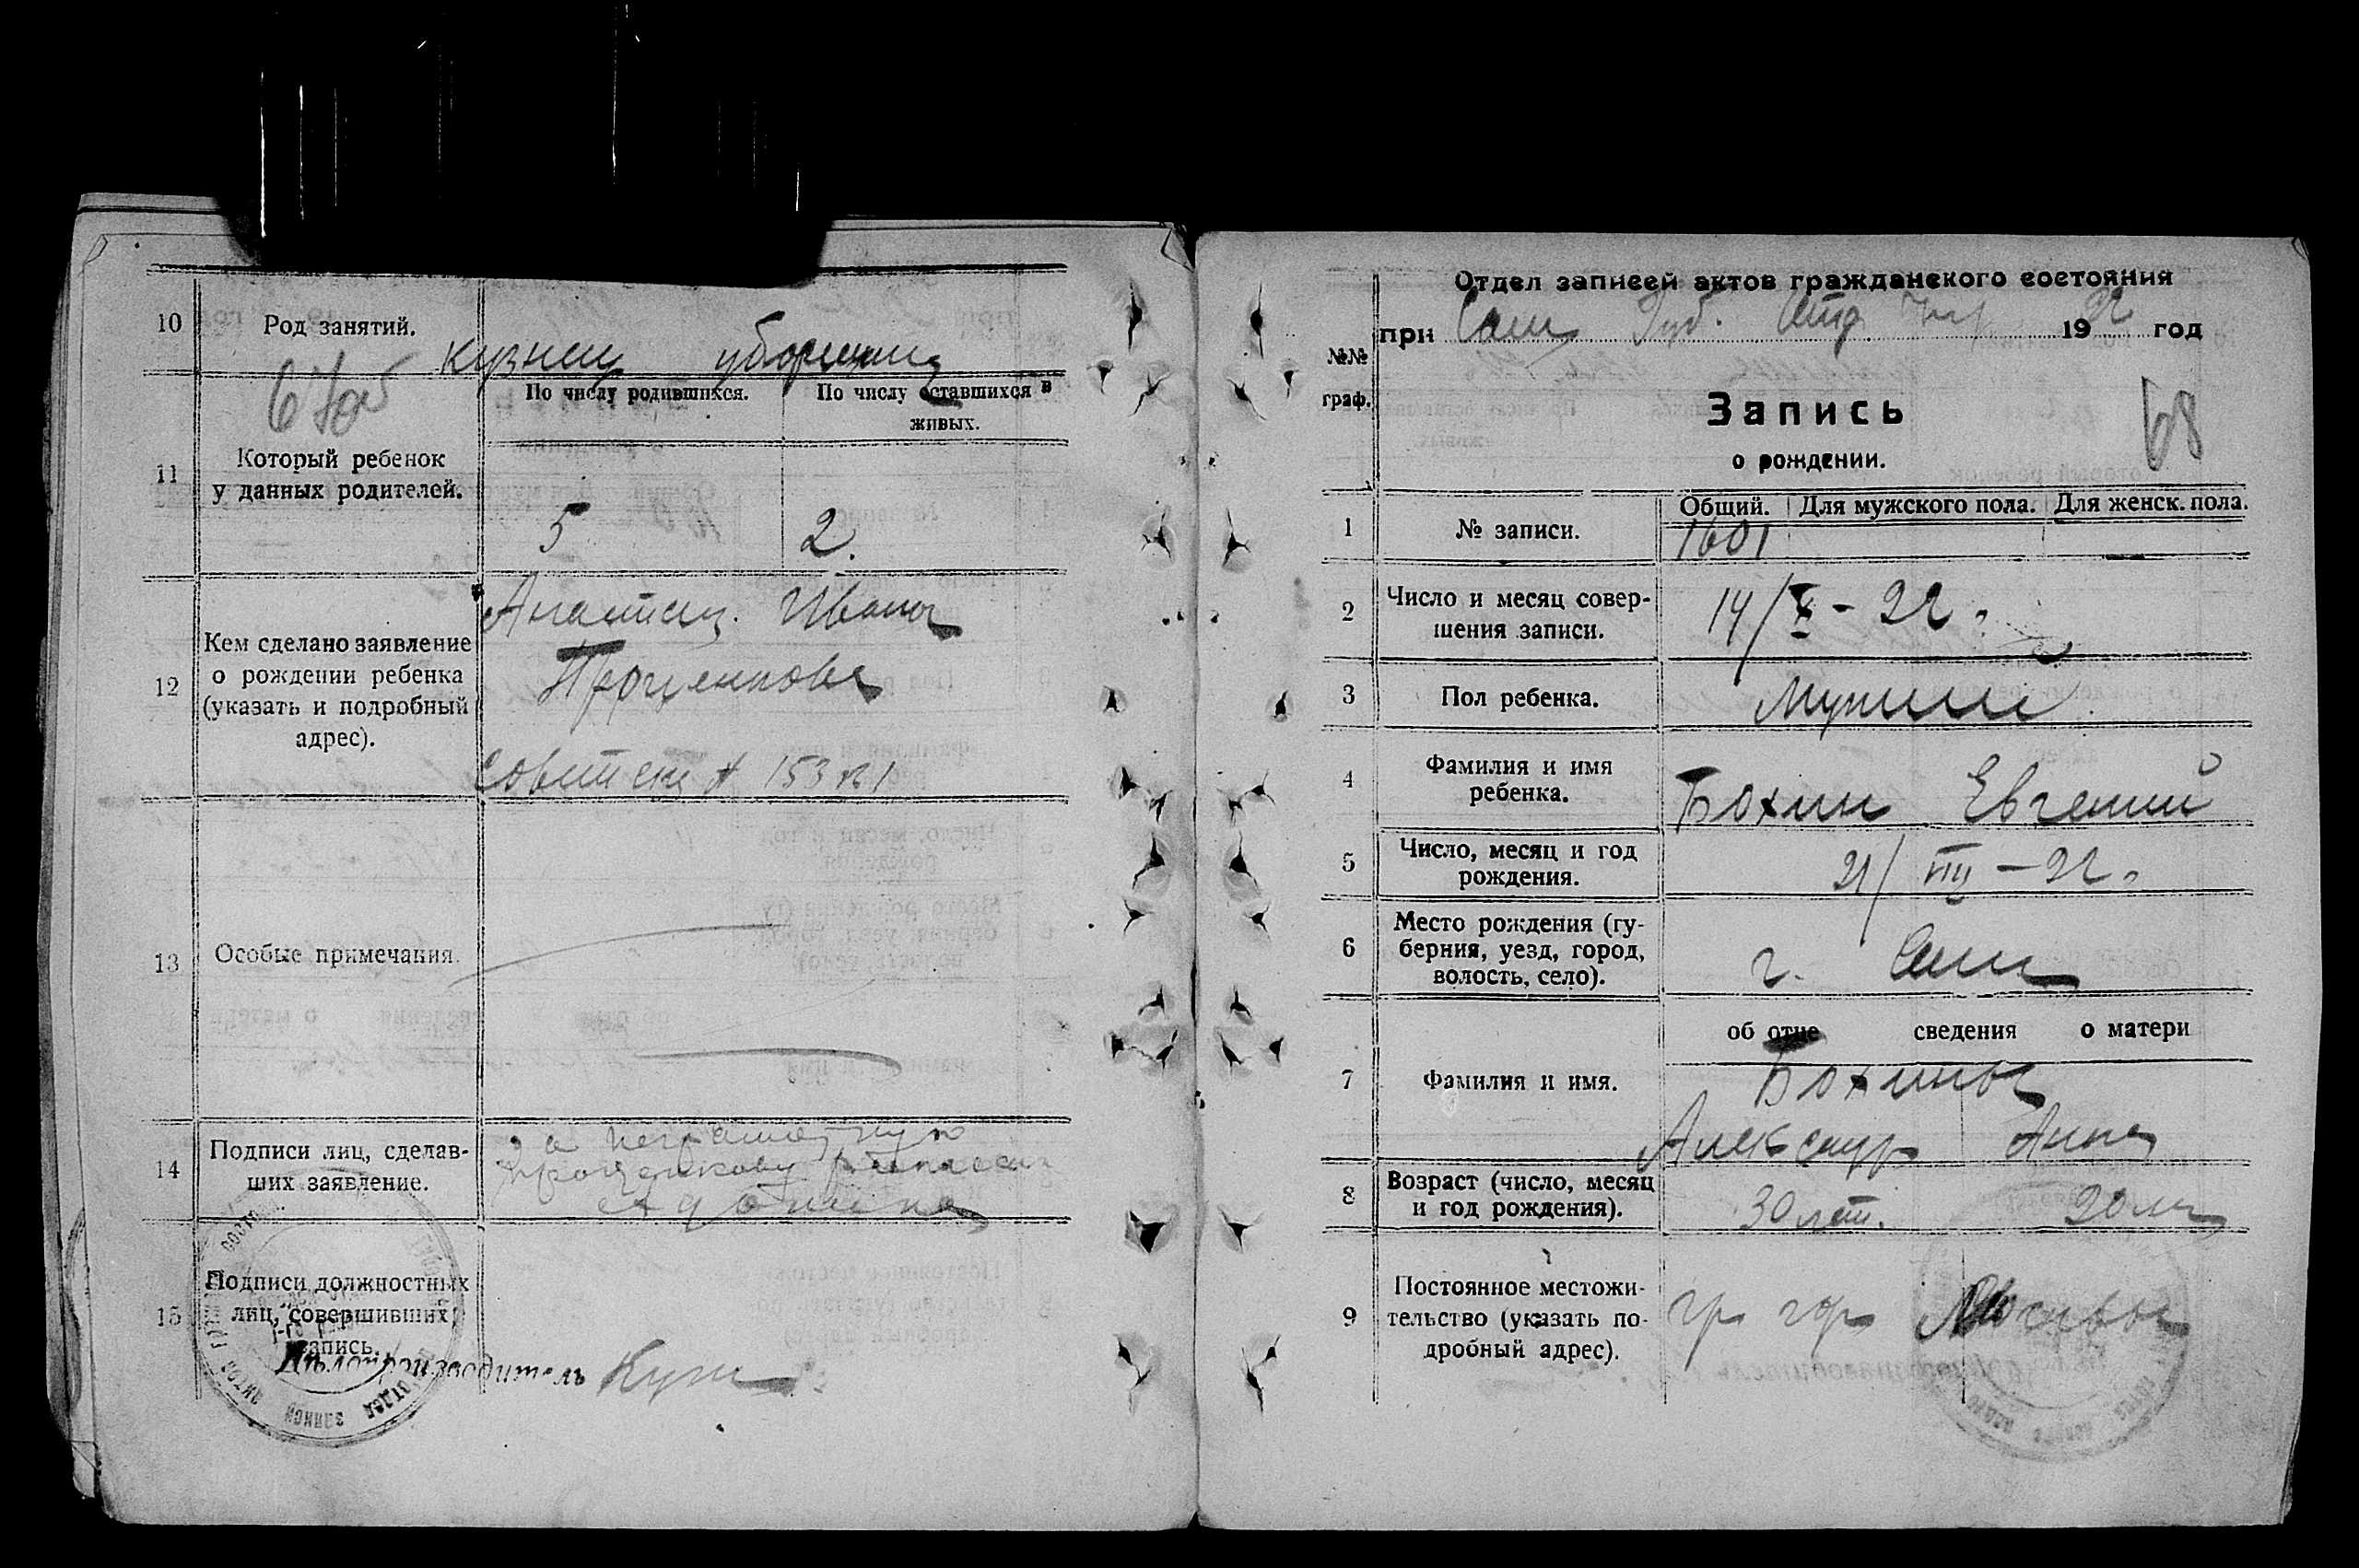 10
Род занятий.
кузнец уборщица
11
Который ребенок
у данных родителей.
По числу родившихся.
По числу оставшихся в
живых.
5
2.
12
Кем сделано заявление
о рождении ребенка
(указать и подробный
адрес).
Анастас. Иванов
Проценкова
Советская 153 к 1
13
Особые примечания.
14
Подписи лиц, сделав-
ших заявление.
за неграмотную
Проценкову
15
Подписи должностных
лиц, совершивших
запись.
Делопроизводитель
Отдел записей актов гражданского состояния
при Сам Губ. Отд 1922 год
№№
граф.
Запись
о рождении.
68
1
№ записи.
Общий. Для мужского пола. Для женск. пола.
1601
2
Число и месяц совер-
шения записи.
14/X - 22.
3
Пол ребенка.
Мужской
4
Фамилия и имя
ребенка.
Бохин Евгений
5
Число, месяц и год
рождения.
21/VIII - 22.
6
Место рождения (гу-
берния, уезд, город,
волость, село).
г. Сам
об отце сведения о матери
7
Фамилия и имя.
Бохины
Александр Анна
8
Возраст (число, месяц
и год рождения).
30 лет. 20 лет
9
Постоянное местожи-
тельство (указать по-
дробный адрес).
гр гор Москвы